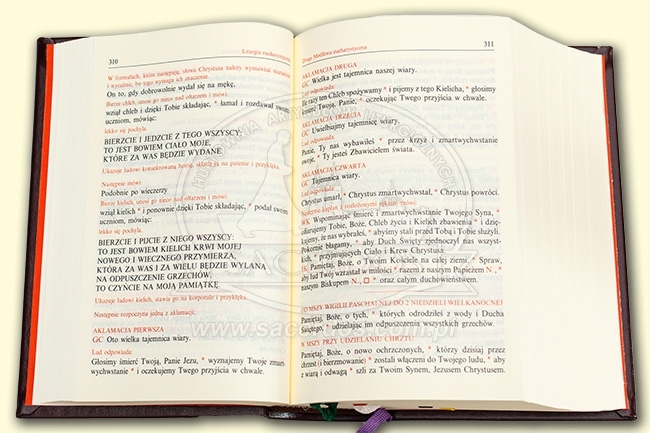 310
Liturgia eucharystyczna
W formułach, które następują, słowa Chrystusa należy wymawiać starannie
i wyraźnie, bo tego wymaga ich znaczenie.
On to, gdy dobrowolnie wydał się na mękę,
Bierze chleb, unosi go nieco nad ołtarzem i mówi:
wziął chleb i dzięki Tobie składając, * łamał i rozdawał swoim
uczniom, mówiąc:
lekko się pochyla.
BIERZCIE I JEDZCIE Z TEGO WSZYSCY:
TO JEST BOWIEM CIAŁO MOJE,
KTÓRE ZA WAS BĘDZIE WYDANE.
Ukazuje ludowi konsekrowaną hostię, składa ją na patenie i przyklęka.
Następnie mówi:
Podobnie po wieczerzy
Bierze kielich, unosi go nieco nad ołtarzem i mówi:
wziął kielich * i ponownie dzięki Tobie składając, * podał swoim
uczniom, mówiąc:
lekko się pochyla.
BIERZCIE I PIJCIE Z NIEGO WSZYSCY:
TO JEST BOWIEM KIELICH KRWI MOJEJ
NOWEGO I WIECZNEGO PRZYMIERZA,
KTÓRA ZA WAS I ZA WIELU BĘDZIE WYLANA
NA ODPUSZCZENIE GRZECHÓW.
TO CZYŃCIE NA MOJĄ PAMIĄTKĘ.
Ukazuje ludowi kielich, stawia go na korporale i przyklęka.
Następnie rozpoczyna jedną z aklamacji:
AKLAMACJA PIERWSZA
GC Oto wielka tajemnica wiary.
Lud odpowiada:
Głosimy śmierć Twoją, Panie Jezu, * wyznajemy Twoje zmart-
wychwstanie * i oczekujemy Twego przyjścia w chwale.
Druga Modlitwa eucharystyczna
311
AKLAMACJA DRUGA
GC Wielka jest tajemnica naszej wiary.
Lud odpowiada:
Ile razy ten Chleb spożywamy * i pijemy z tego Kielicha, * głosimy
śmierć Twoją, Panie, * oczekując Twego przyjścia w chwale.
AKLAMACJA TRZECIA
GC Uwielbiajmy tajemnicę wiary.
Lud odpowiada:
Panie, Ty nas wybawiłeś * przez krzyż i zmartwychwstanie
swoje, * Ty jesteś Zbawicielem świata.
AKLAMACJA CZWARTA
GC Tajemnica wiary.
Lud odpowiada:
Chrystus umarł, * Chrystus zmartwychwstał, * Chrystus powróci.
Następnie kapłan z rozłożonymi rękami mówi:
WK Wspominając śmierć i zmartwychwstanie Twojego Syna, *
ofiarujemy Tobie, Boże, Chleb życia i Kielich zbawienia * i dzię-
kujemy, że nas wybrałeś, * abyśmy stali przed Tobą i Tobie służyli.
Pokornie błagamy, * aby Duch Święty zjednoczył nas wszyst-
kich, * przyjmujących Ciało i Krew Chrystusa.
Pamiętaj, Boże, o Twoim Kościele na całej ziemi. * Spraw,
aby lud Twój wzrastał w miłości * razem z naszym Papieżem N., *
naszym Biskupem N. * oraz całym duchowieństwem.
W MSZY WIGILII PASCHALNEJ DO 2 NIEDZIELI WIELKANOCNEJ
Pamiętaj, Boże, o tych, * których odrodziłeś z wody i Ducha
Świętego, * udzielając im odpuszczenia wszystkich grzechów.
W MSZY PRZY UDZIELANIU CHRZTU
Pamiętaj, Boże, o nowo ochrzczonych, * którzy dzisiaj przez
chrzest (i bierzmowanie) * zostali włączeni do Twojego ludu, * aby
z wiarą i odwagą * szli za Twoim Synem, Jezusem Chrystusem.
www.sacerdos.com.pl